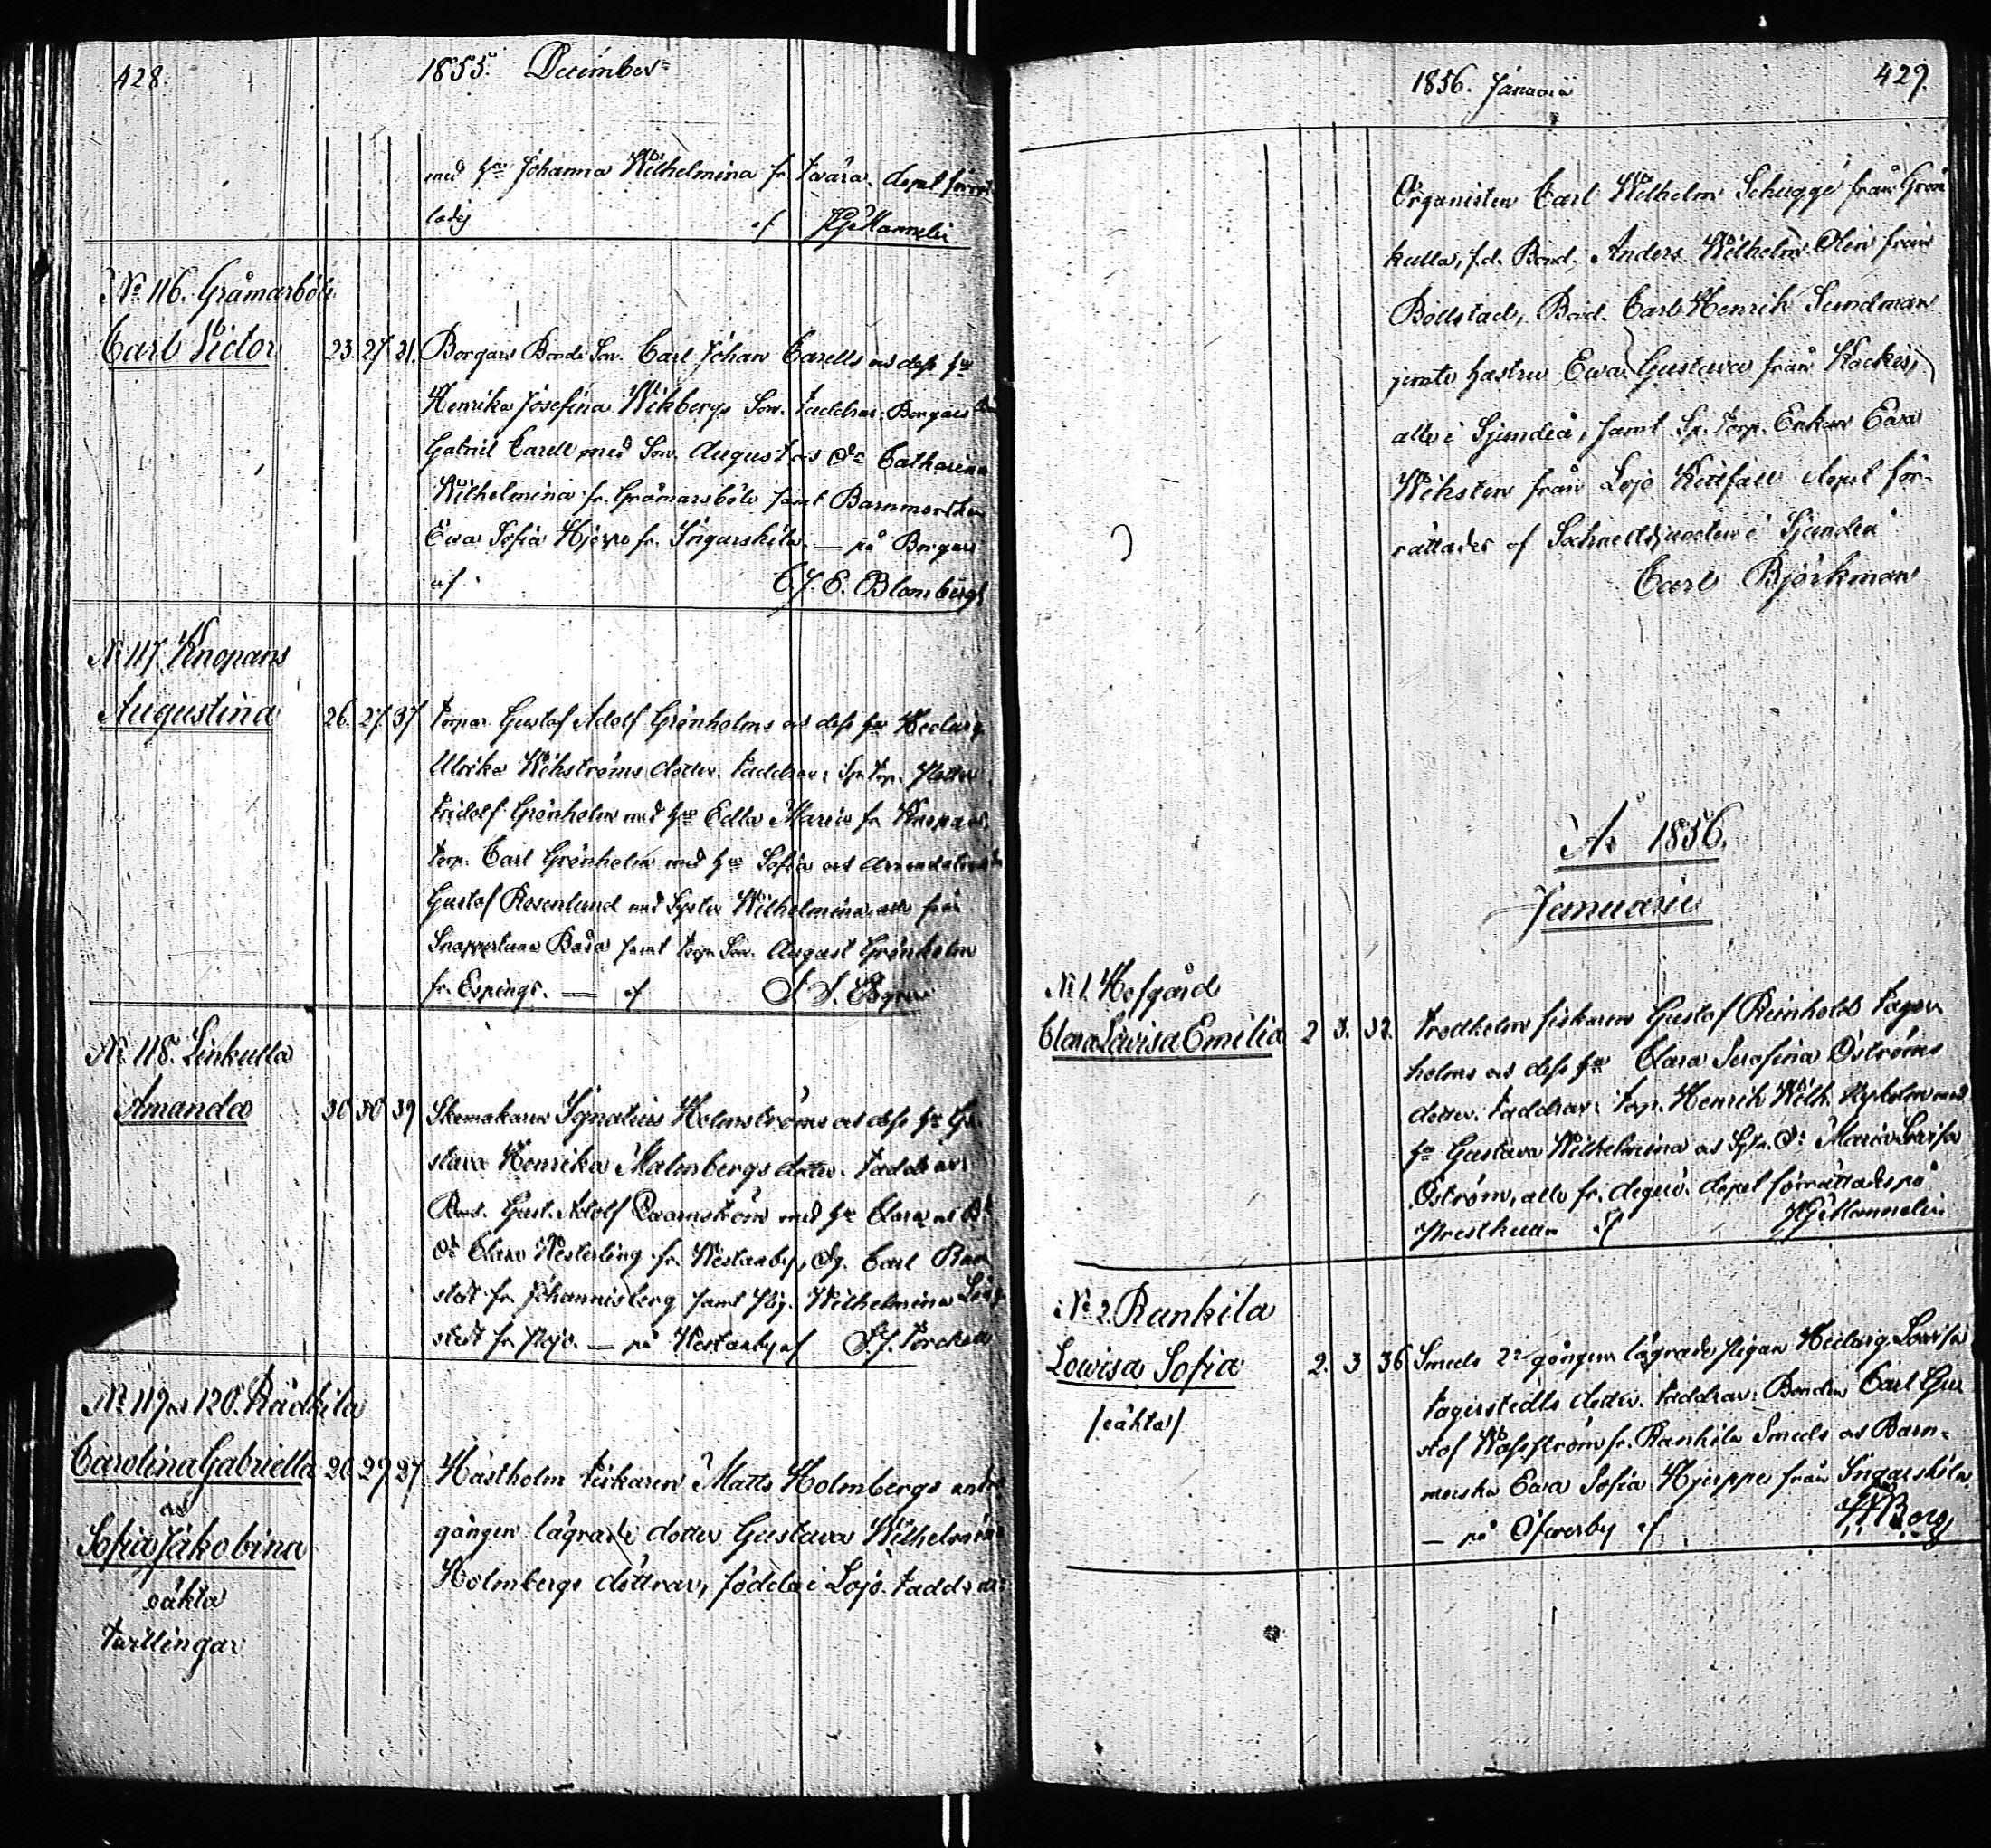 428.
1855. December
med Hu Johanna Wilhelmina fr. Dopet förrät-
tadej af
No 116. Gråmarböle
Carl Victor 23. 27. 31. Borgars Bonde Son. Carl Johan Carells och dess Hu
Henrika Josefina Wikbergs Son. Faddrar. Borgars
Gabriel Carell med Son. August och Dr Catharina
Wilhelmina fr. Gråmarsböle samt Barnmorskan
Ewa Sofia Hjerpe fr. Ingarskila. — på Borgars
af C. J. E. Blomberg
No 117. Knopans
Augustina 26. 27. 37 Torpar. Gustaf Adolf Grönholms och dess Hu Hedwig
Ulrika Wikströms dotter. Faddrar: Sp. Torp.
Fridolf Grönholm med Hu Edla Maria fr. Knopans,
Torp. Carl Grönholm med Hu Sofia och
Gustaf Rosenlund med Syster Wilhelmina, alla från
Snappertuna samt Torp. Son. August Grönholm
fr. Espings. — af
No 118. Linkulla
Amanda 30 30 39 Skomakaren Ignatius Holmströms och dess Hu Gu-
stava Henrika Malmbergs dotter. Faddrar:
Bond. Gust. Adolf Qvarnström med Hu Clara och
Dr Clara Westerling fr. Westankby, Dg. Carl
stedt fr. Johannisberg samt Pig. Wilhelmina
stedt fr. — på Westankby af
No 119 och 120. Rådkila
Carolina Gabriella 26 29 27 Hästholm Fiskaren Matts Holmbergs andra
och
gången lägrade dotter Gustava Wilhelmina
Sofia Jakobina
Holmbergs döttrar, födda i Lojo. Faddrar:
oäkta
Tvillingar
1856. Januarii
429.
Organisten Carl Wilhelm Schugge från
kulla, f.d. Bond. Anders Wilhelm Olin från
Böllstad, Bond. Carl Henrik Sundman
jemte hustru Ewa Gustava från
alla i Sjundeå, samt Sp. Torp. Enkan Ewa
Wiksten från Lojo Dopet för-
rättades af Sockneadjuncten i Sjundeå
Carl Björkman
År 1856.
Januarii
No 1. Hofgård
Clara Lovisa Emilia 2 3. 32. Tredholm fiskaren Gustaf Reinhold Fager-
holms och dess Hu Clara Serafina Öströms
dotter. Faddrar: Torp. Henrik Wilh. Nyholm med
Hu Gustava Wilhelmina och Dr Maria Lovisa
Öström, alla fr. Degerö. Dopet förrättades på
Prestkulla af
No 2. Rankila
Lovisa Sofia 2. 3 36 Smeds 2a gången lägrade Pigan Hedwig Lovisa
/oäkta/
Fagerstedts dotter. Faddrar: Bonden Carl Gu-
stof Wassström fr. Rankila Smeds och Barn-
morska Ewa Sofia Hjerppe från Ingarskila.
— på Öfverby af Borg